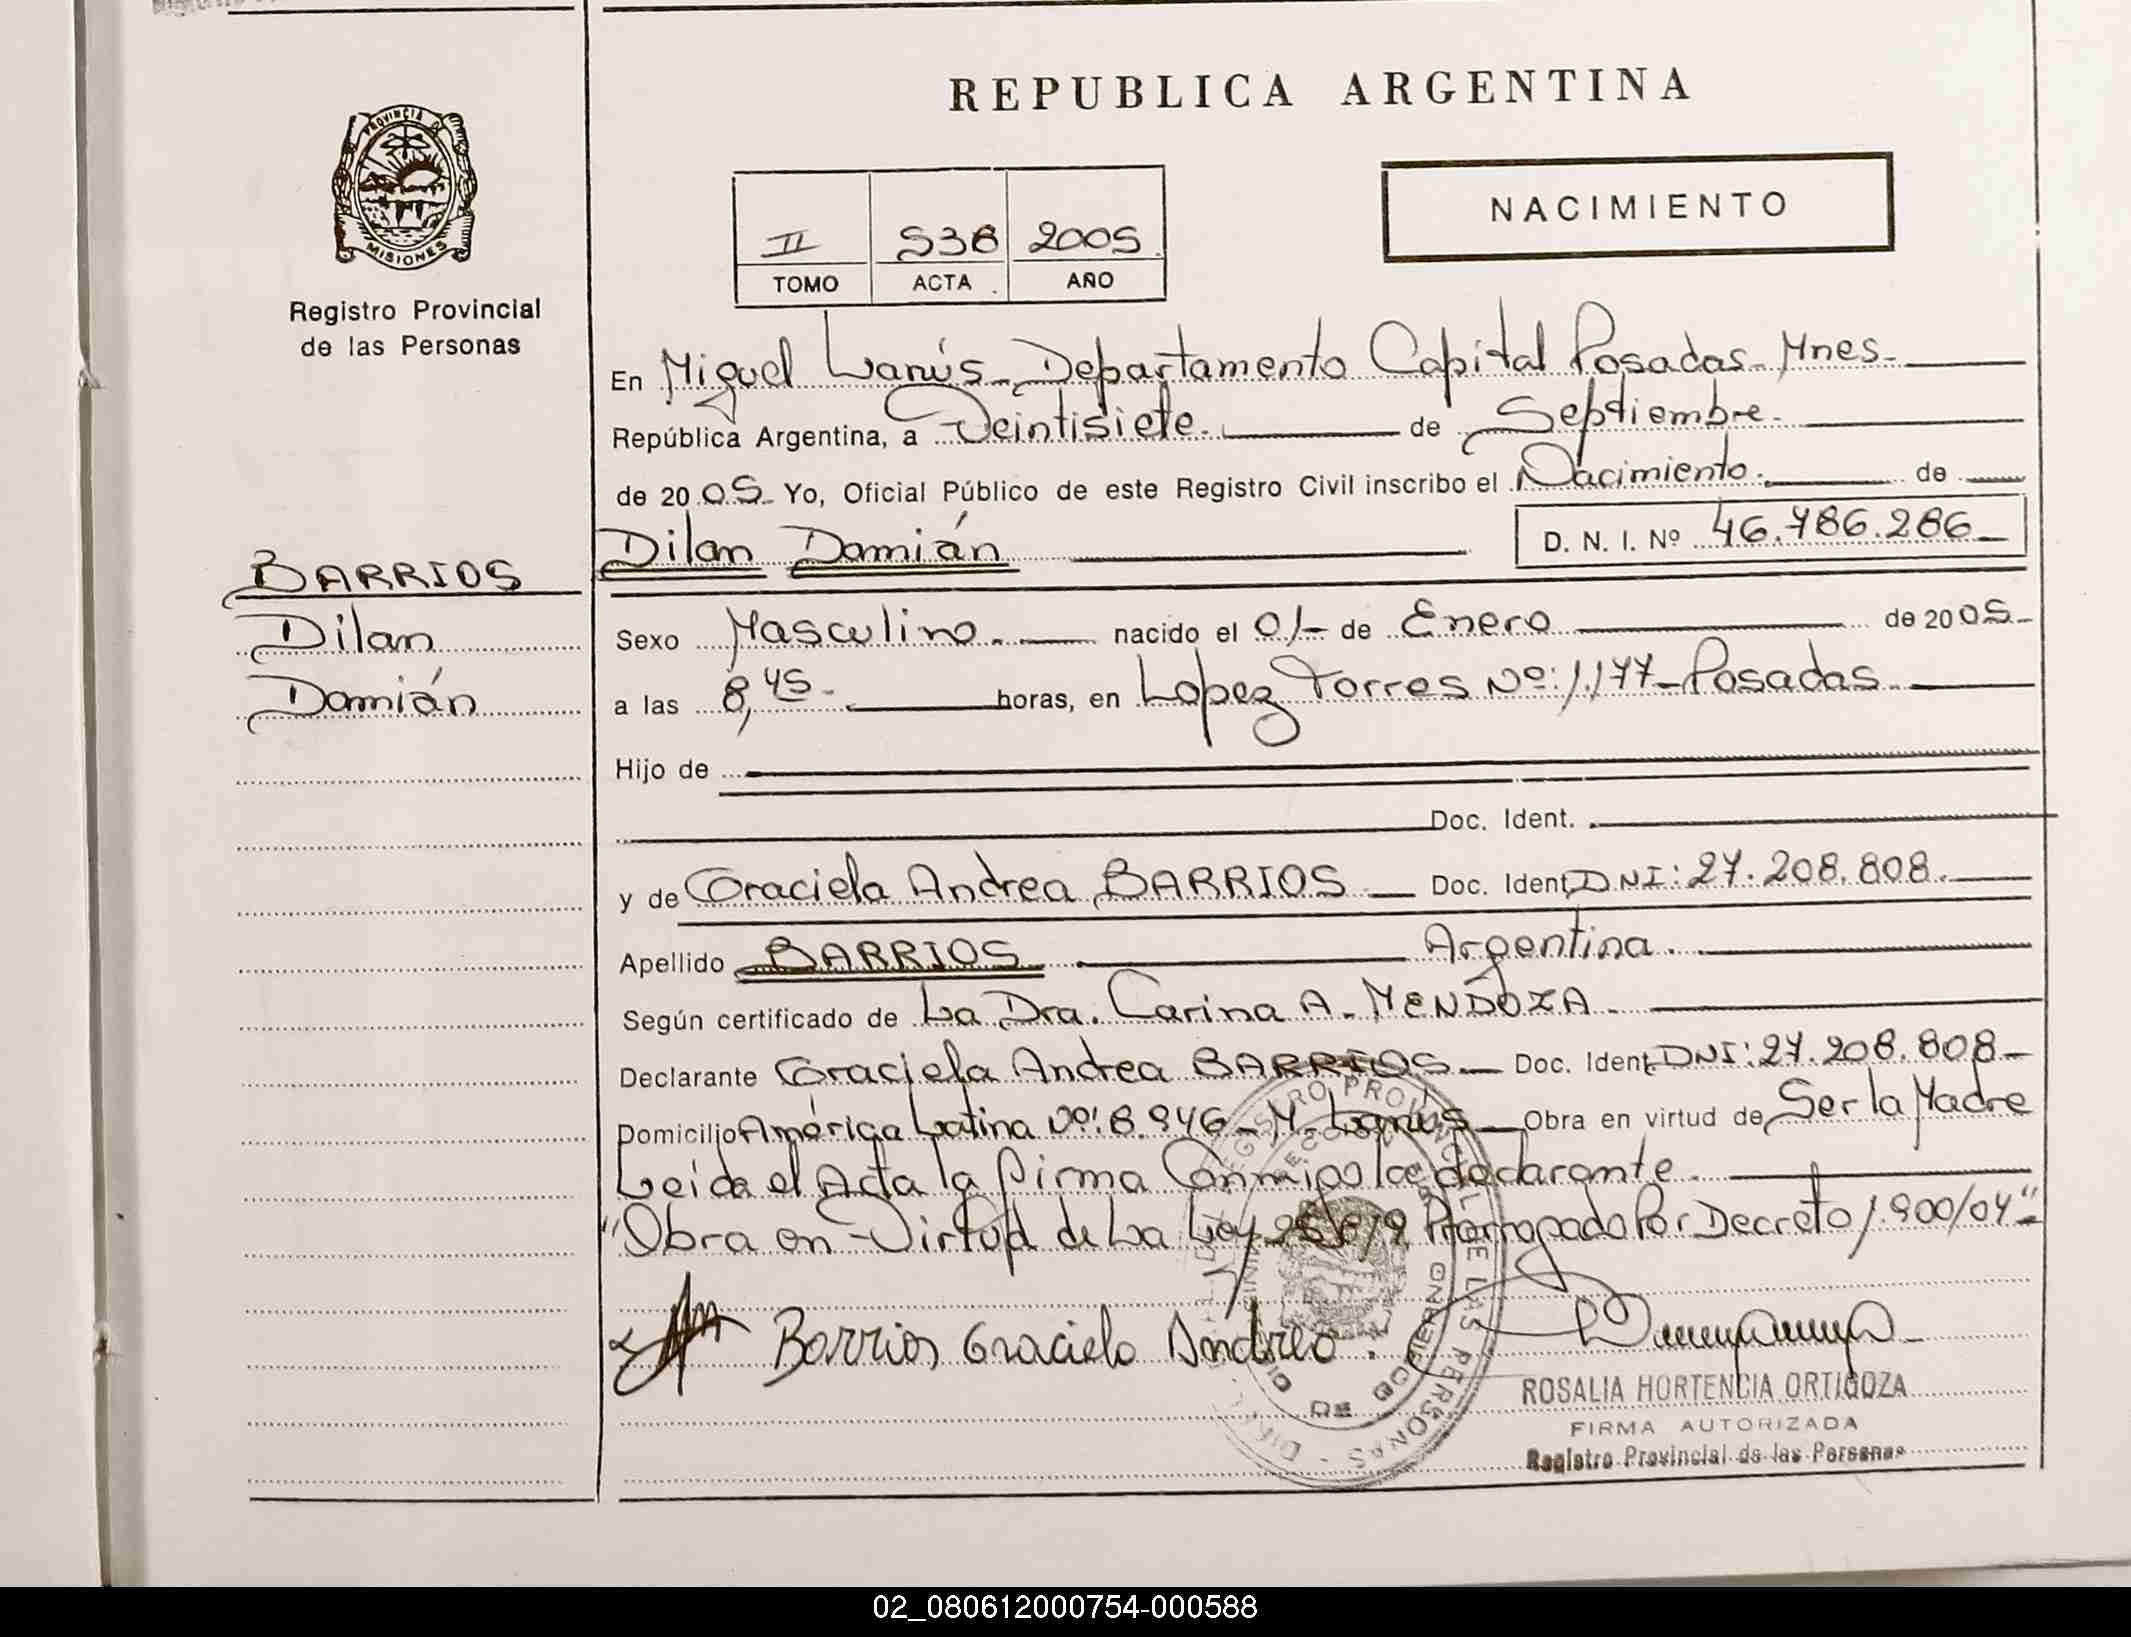 REPUBLICA ARGENTINA
PROVINCIA DE
MISIONES
Registro Provincial
de las Personas
NACIMIENTO
II 538 2005
TOMO ACTA AÑO
En Miguel Lanús - Departamento Capital Posadas - Mnes.
República Argentina, a Veintisiete. de Septiembre.
de 2005 Yo, Oficial Público de este Registro Civil inscribo el Nacimiento. de
Dilan Damián D. N. I. Nº 46.786.286
BARRIOS
Dilan
Damián
Sexo Masculino. nacido el 01 de Enero de 2005
a las 8,45 horas, en Lopez Torres Nº: 1.177 - Posadas
Hijo de
Doc. Ident.
y de Graciela Andrea BARRIOS Doc. Ident. DNI: 27.208.808.
Apellido BARRIOS Argentina.
Según certificado de La Dra. Carina A. MENDOZA
Declarante Graciela Andrea BARRIOS Doc. Ident. DNI: 27.208.808
Domicilio América Latina Nº: 8.946 - M. Lanús Obra en virtud de Ser la Madre
Leida el Acta la firma Conmigo la declarante.
"Obra en Virtud de La Ley Prorrogado Por Decreto 1.900/04"
Barrios Graciela Andrea.
ROSALIA HORTENCIA ORTIGOZA
FIRMA AUTORIZADA
Registro Provincial de las Personas
02_080612000754-000588